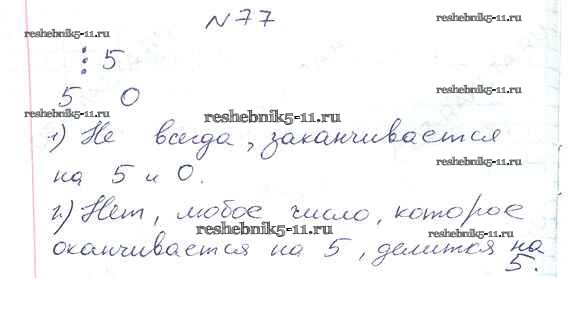 №77
reshebnik5-11.ru
reshebnik5-11.ru
⋮ 5
reshebnik5-11.ru
5 0
reshebnik5-11.ru
reshebnik5-11.ru
1) Не всегда, заканчивается
reshebnik5-11.ru
на 5 и 0.
2) Нет, любое число, которое
reshebnik5-11.ru
оканчивается на 5, делится на
reshebnik5-11.ru
5.